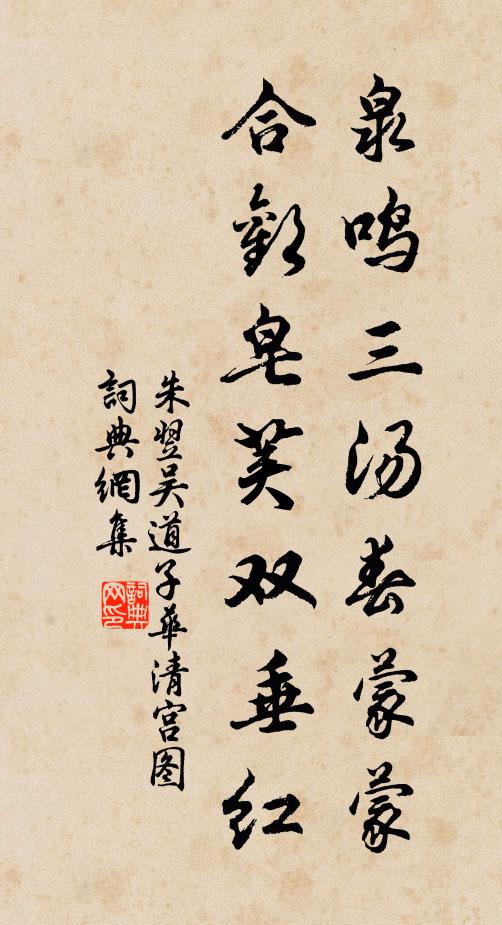 泉鸣三汤春蒙蒙
合歡皂荚双垂红
朱翌吴道子華清宫图
詞典網集
詞典网印